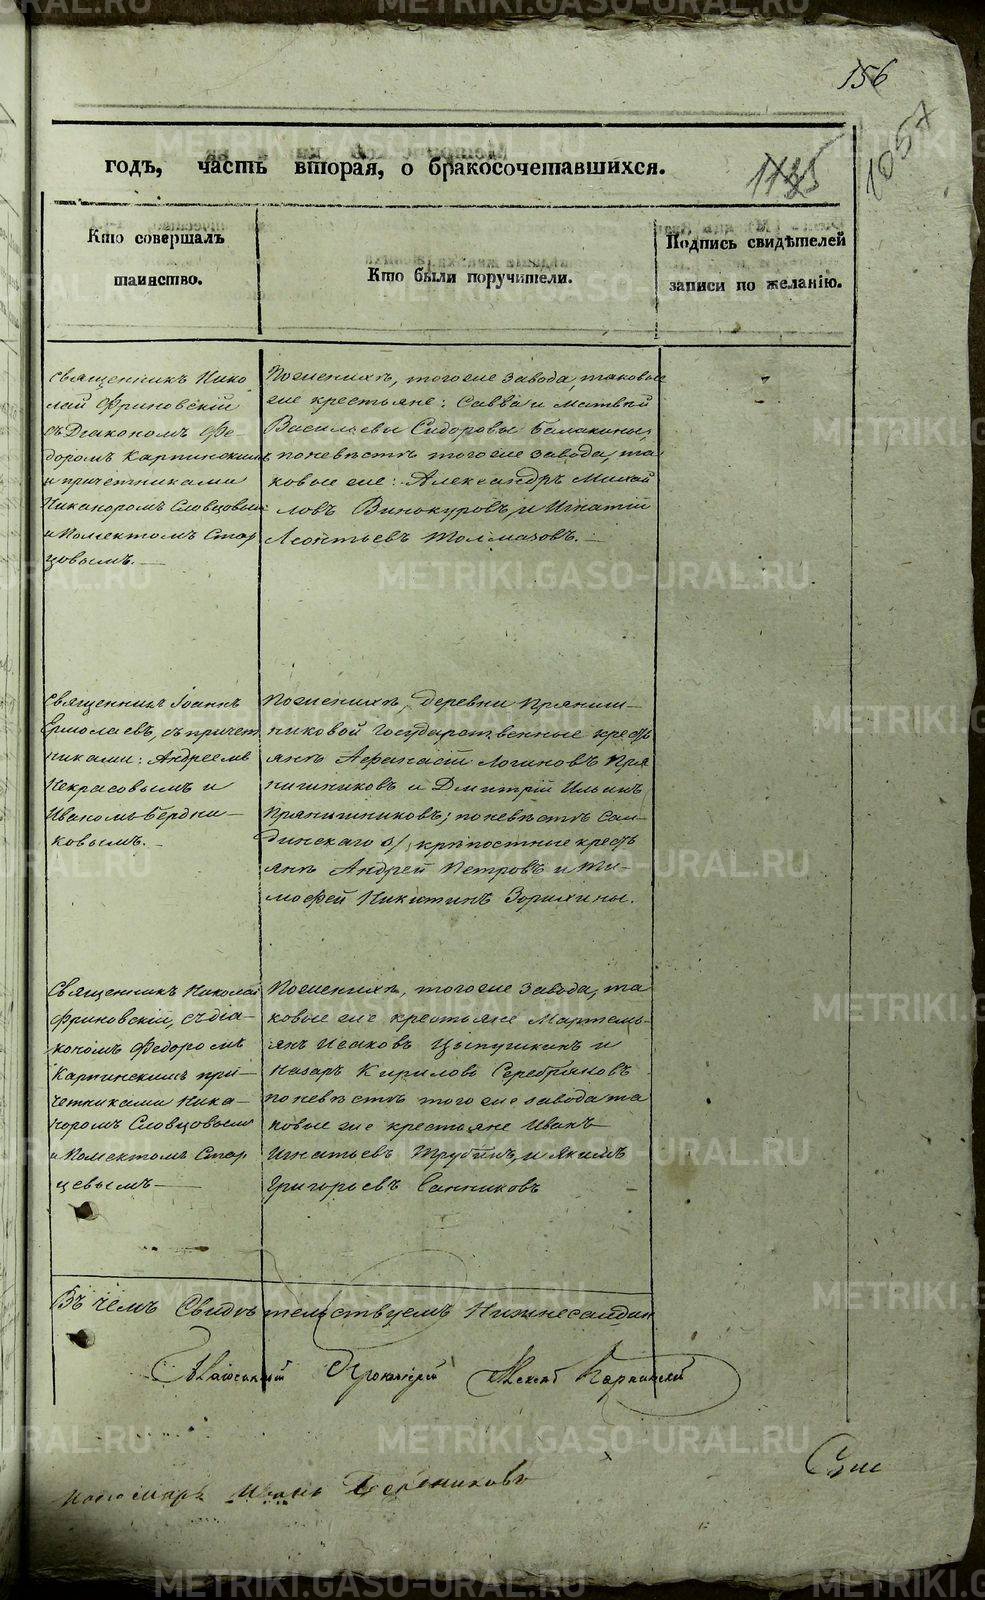 156
1057
годъ, часть вторая, о бракосочетавшихся.
Кто совершалъ
таинство.
Кто были поручители.
Подпись свидѣтелей
записи по желанію.
Священникъ Нико
лай Фриновскій
съ Діакономъ Фе-
доромъ Карпинскимъ
и причетниками
Никаноромъ Словцовымъ
и Полектомъ Стар
цовымъ.
По женихѣ, того же завода, таковые
же крестьяне: Савва и Матвѣй
Васильевы Сидоровы Балакины,
по невѣстѣ того же завода, та
ковые же: Александръ Михай
ловъ Винокуровъ, и Игнатій
Леонтьевъ Толмачовъ.
Священникъ Іоаннъ
Ермолаевъ, съ причет
никами: Андреемъ
Некрасовымъ и
Иваномъ Бердни-
ковымъ.
По женихѣ, деревни Пряниш-
никовой государственные кресть
янѣ Афанасій Логиновъ Пря
нишниковъ и Дмитрій Ильинъ
Прянишниковъ; по невѣстѣ Сал-
динскаго з/ крѣпостные кресть
янѣ Андрей Петровъ и Ти-
мофей Никитинъ Зорихины.
Священникъ Николай
Фриновскій, съ діа-
кономъ Федоромъ
Карпинскимъ при-
четниками Ника-
норомъ Словцовымъ
и Полектомъ Стар
цевымъ
По женихѣ, того же завода, та
ковые же крестьяне Мартемь-
янъ Исаковъ Цыпушкинъ и
Назаръ Кириловъ Серебряковъ
по невѣстѣ того же завода та
ковые же крестьяне Иванъ
Игнатьевъ Трубинъ, и Якимъ
Григорьевъ Санниковъ
Въ чемъ Свидѣтельствуемъ Нижнесалдин
Протоіерей Алексѣй Карпинскій
Пономарь Иванъ Бердниковъ
METRIKI.GASO-URAL.RU